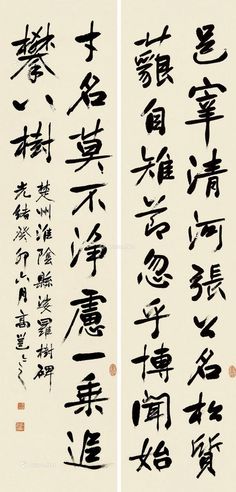 邑宰清河張公名松質
藐自雅節忽乎博聞始
才名莫不淨慮一乘追
攀八樹
楚州淮陰縣娑羅樹碑
光緒癸卯六月高邕之